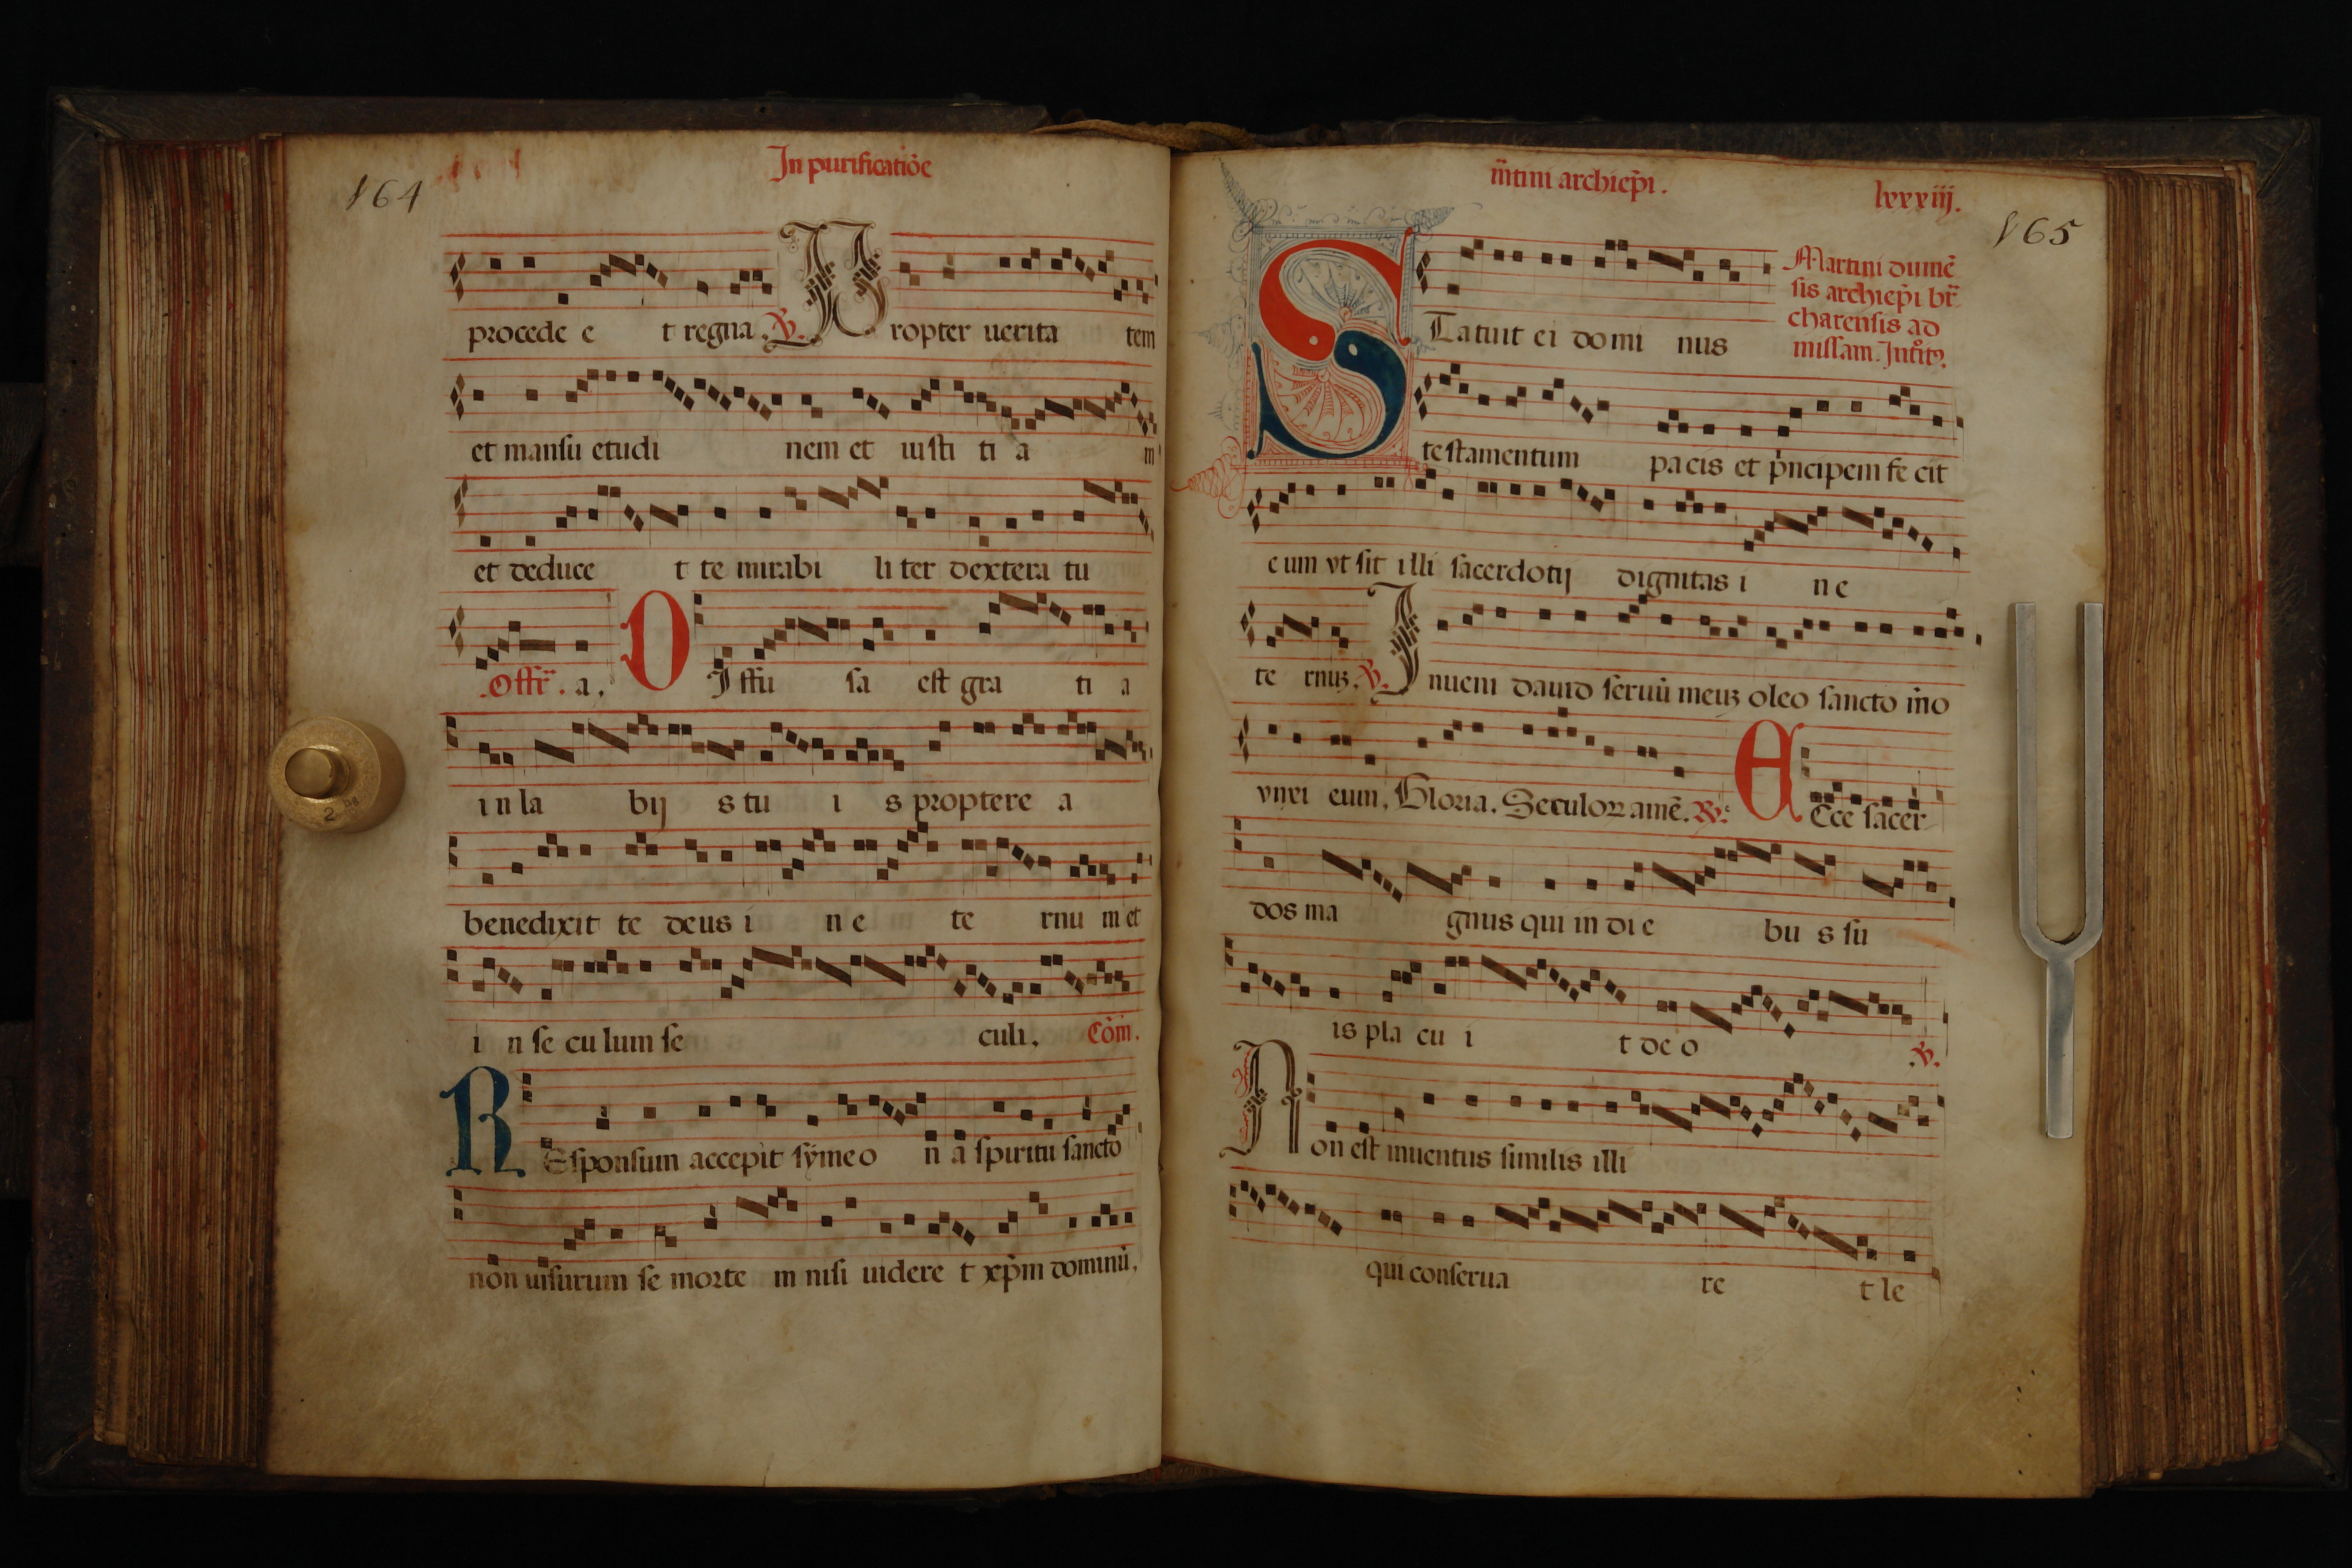 164
In purificatiōe
procede e t regna. ℣. Propter uerita tem
et mansu etudi nem et iusti ti a m
et deduce t te mirabi li ter dextera tu
.Offr̄. a. DIffu sa est gra ti a
in la bij s tu i s proptere a
benedixit te deus i n e te rnu m et
i n se cu lum se culi. Cōm.
REsponsum accepit sýmeo n a spiritu sancto
non uisurum se morte m nisi uidere t xp̄m dominū.
m̄tini archiep̄i.
lxxxiij.
165
Martini dumē
sis archiep̄i br̄
charensis ad
missam. Introitꝫ.
STatuit ei domi nus
testamentum pacis et p̄ncipem fe cit
eum vt sit illi sacerdotij dignitas i n e
te rnuꝫ. ℣. Inueni dauid seruū meuꝫ oleo sancto m̄o
vnxi eum. Gloria. Seculoꝝ amē. ℟. ECce sacer
dos ma gnus qui in di e bu s su
is pla cu i t de o ℣.
Non est inuentus similis illi
qui conserua re t le
2